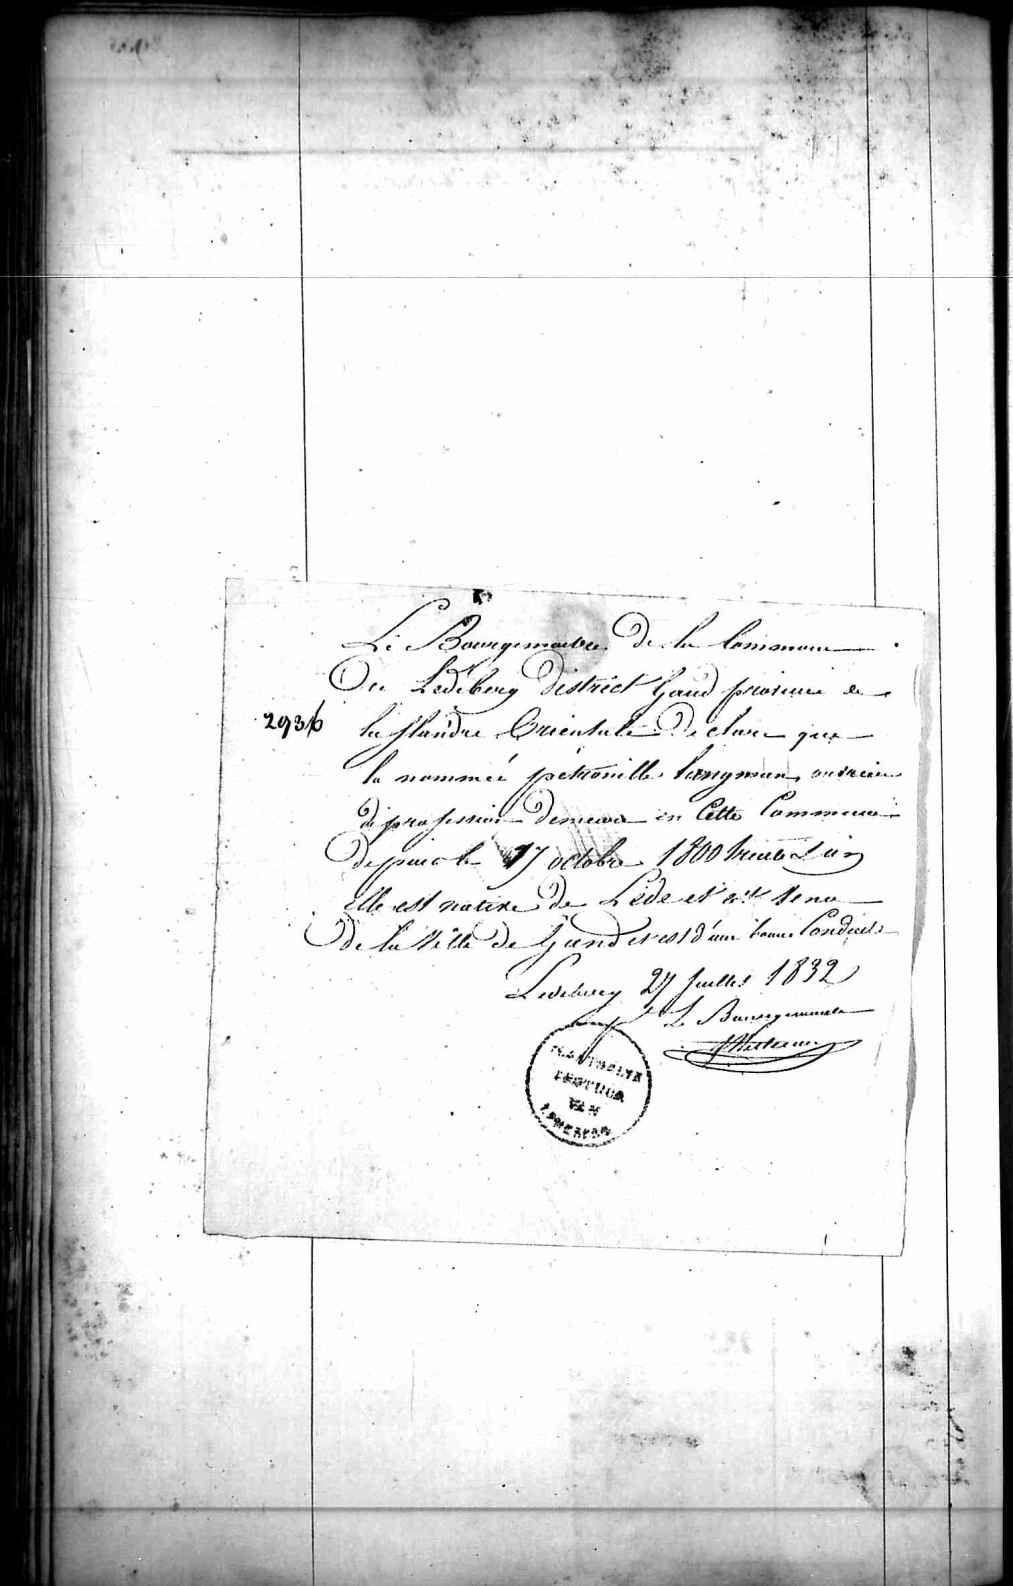 Le Bourgemaitre De la Commune
De Ledeberg District Gand province de
2936
la flandre Orientale Declare que
la nommée pétronille langman, ouvriere
de profession Demeure en Cette Commune
Depuis le 17 octobre 1800 trente & un
Elle est native de Lede et est venu
de la Ville de Gand et est d'une bonne Conduite
Ledeberg 27 Juillet 1832
Le Bourgemaitre
PLAETSELYK
BESTUUR
VAN
LEDEBERG